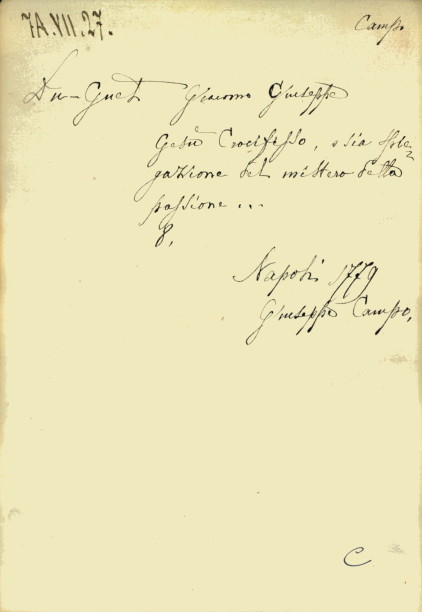 7A.VII.27.
Campo
Du-Guet Giacomo Giuseppe
Gesù Crocifisso, o sia spie-
gazione del mistero della
passione ...
8.
Napoli 1779
Giuseppe Campo.
C